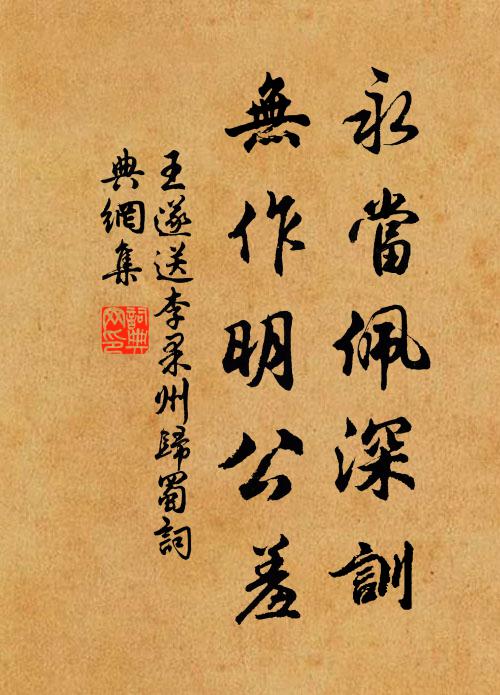 永當佩深訓
無作明公羞
王遂送李果州歸蜀詞
典網集
詞典網印